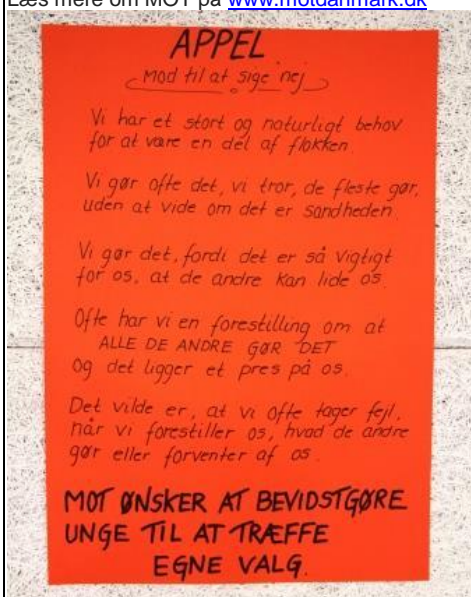 Læs mere om MOT på www.motdanmark.dk
APPEL
Mod til at sige nej
Vi har et stort og naturligt behov
for at være en del af flokken.
Vi gør ofte det, vi tror, de fleste gør,
uden at vide om det er sandheden.
Vi gør det, fordi det er så vigtigt
for os, at de andre kan lide os.
Ofte har vi en forestilling om at
ALLE DE ANDRE GØR DET
Og det ligger et pres på os.
Det vilde er, at vi ofte tager fejl,
når vi forestiller os, hvad de andre
gør eller forventer af os.
MOT ØNSKER AT BEVIDSTGØRE
UNGE TIL AT TRÆFFE
EGNE VALG.